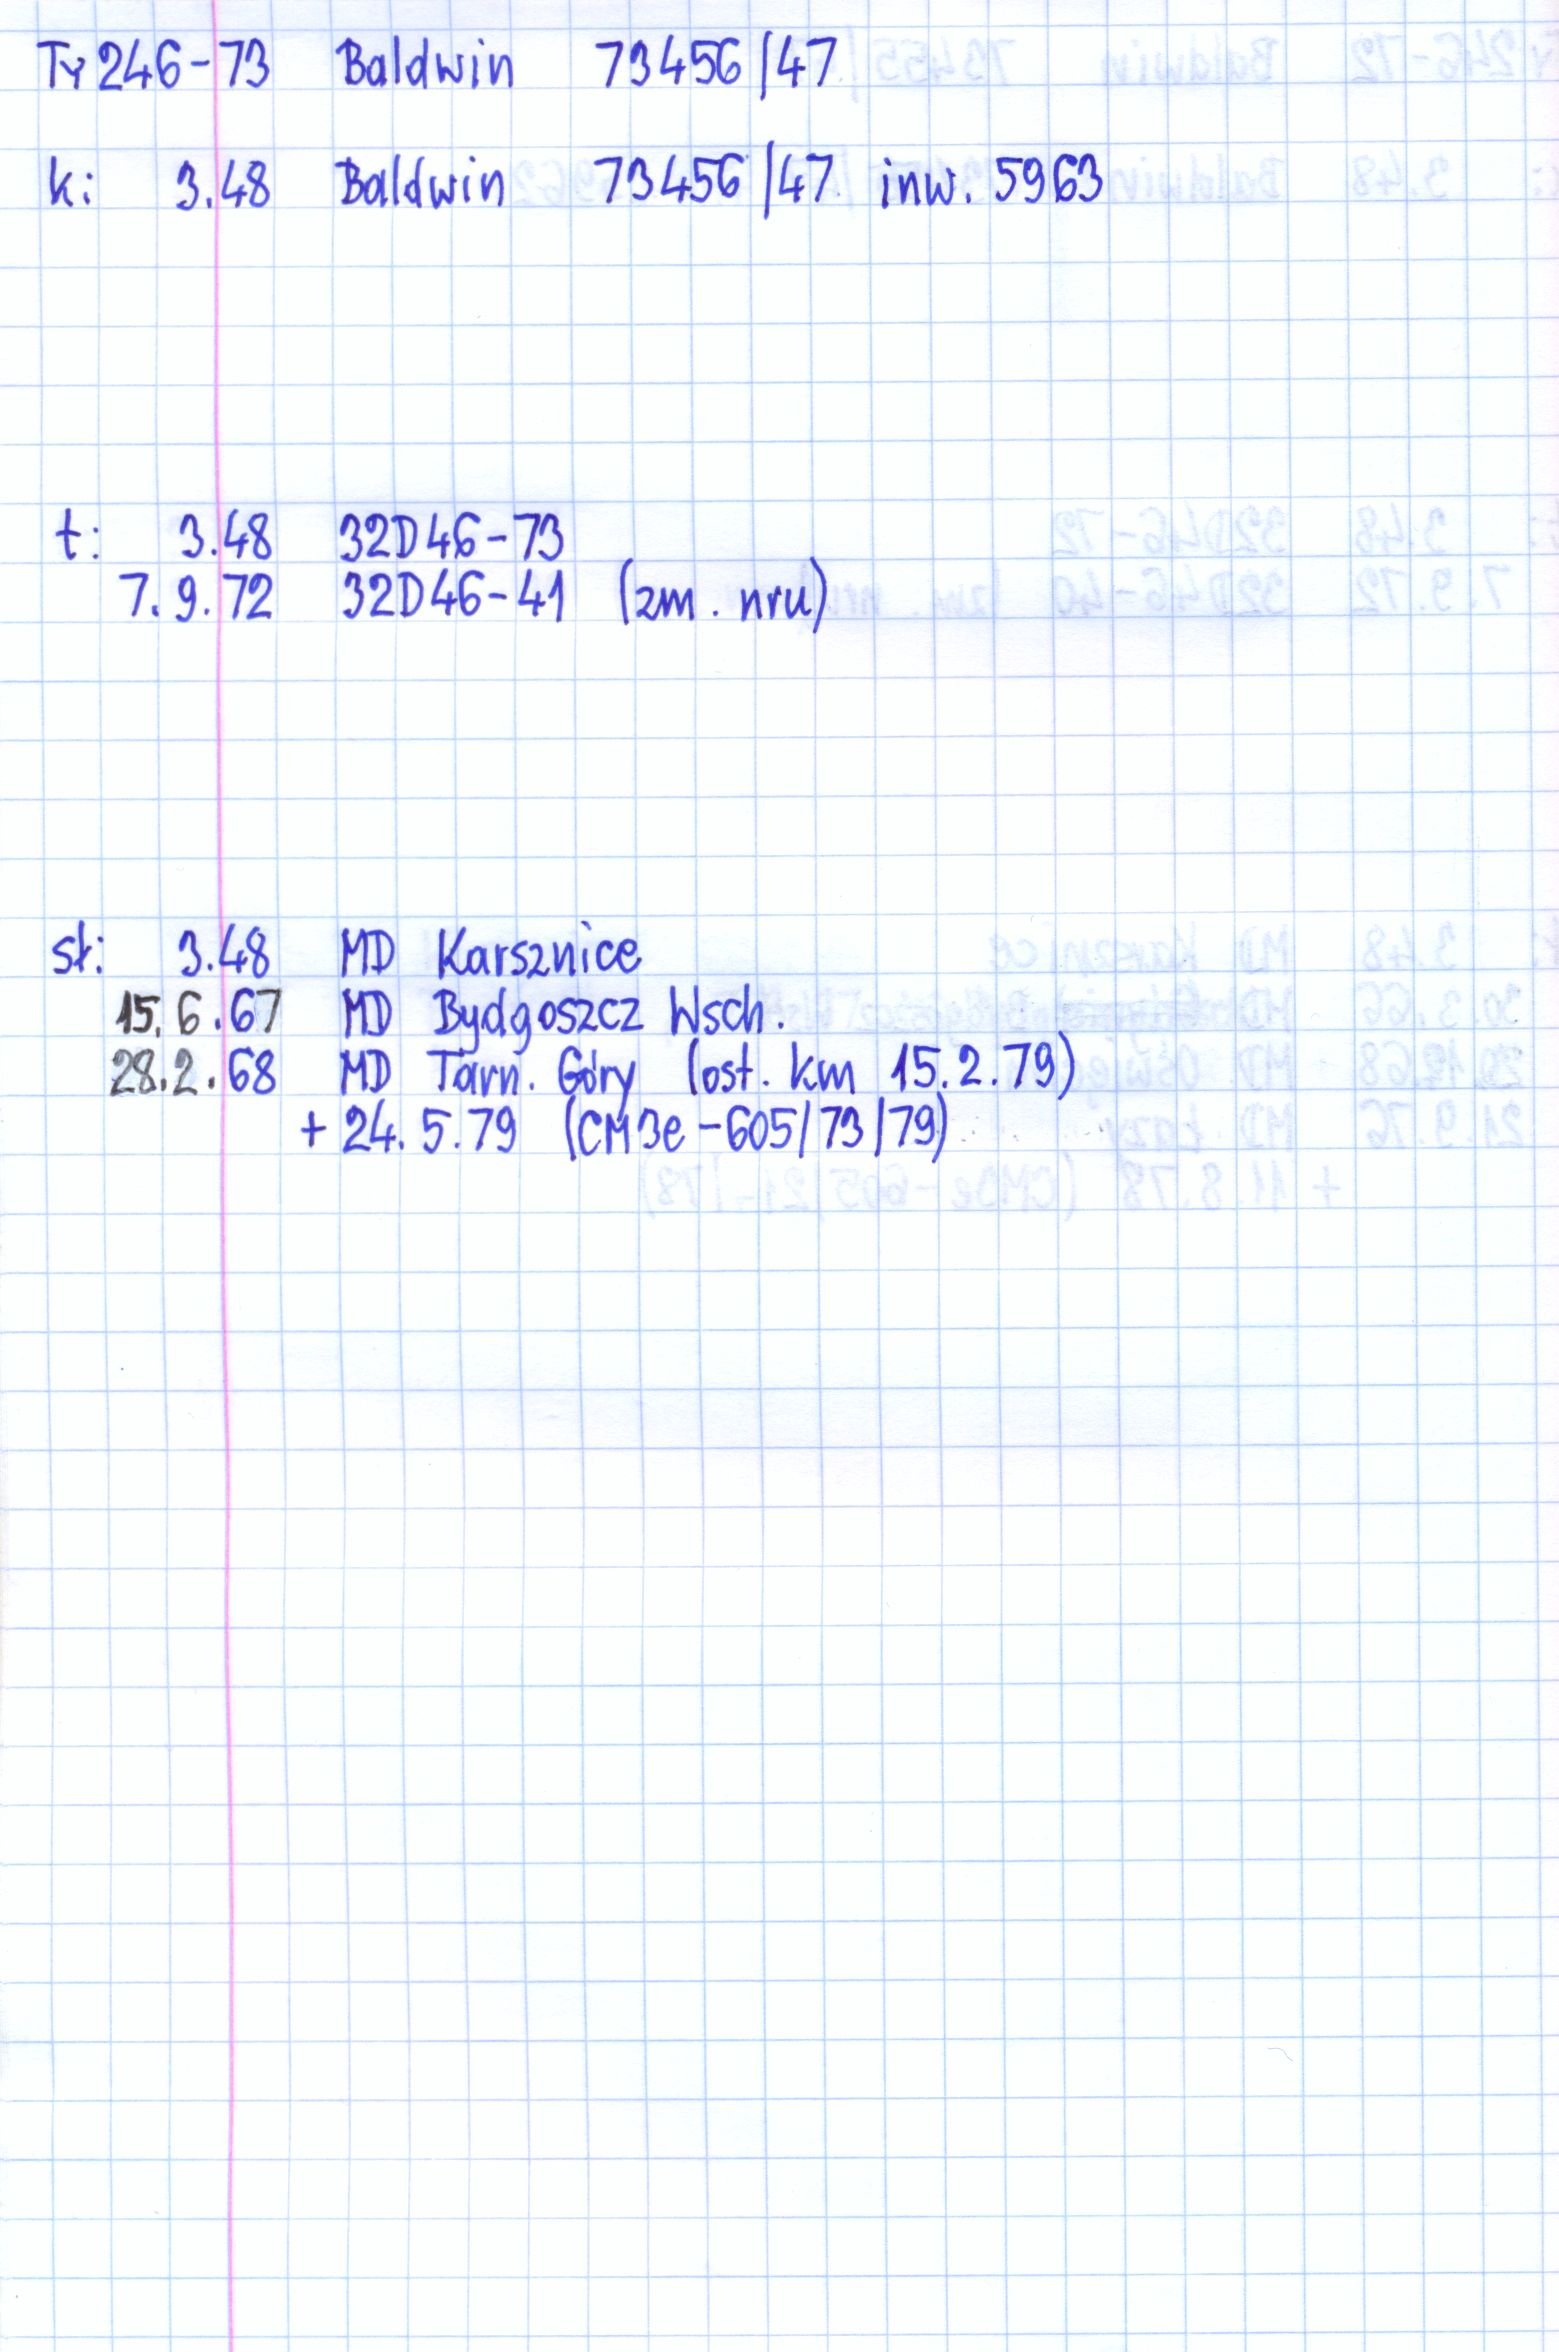 Ty246-73 Baldwin 73456/47
k: 3.48 Baldwin 73456/47 inw. 5963
t: 3.48 32D46-73
7.9.72 32D46-41 (zm. nru)
st: 3.48 MD Karsznice
15.6.67 MD Bydgoszcz Wsch.
28.2.68 MD Tarn. Góry (ost. km 15.2.79)
+ 24.5.79 (CM3e-605/73/79)